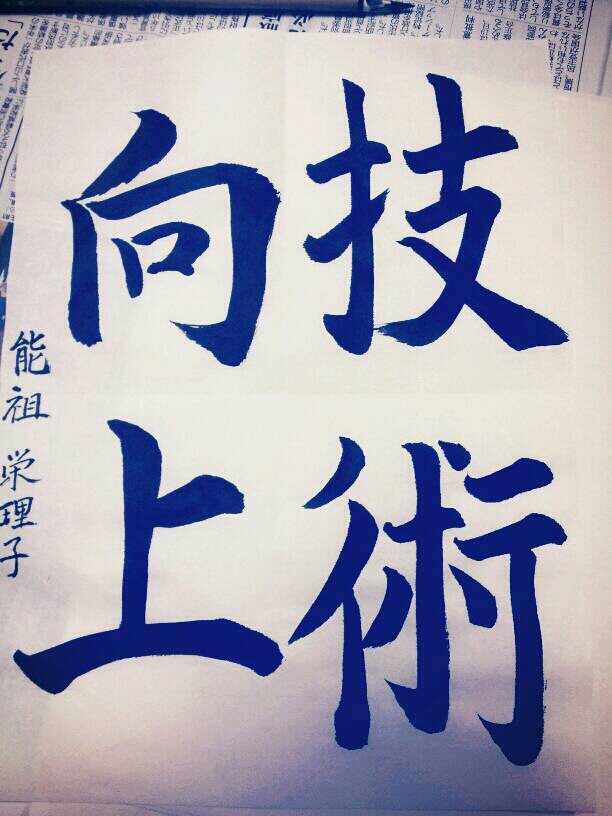 技術
向上
能祖 栄理子